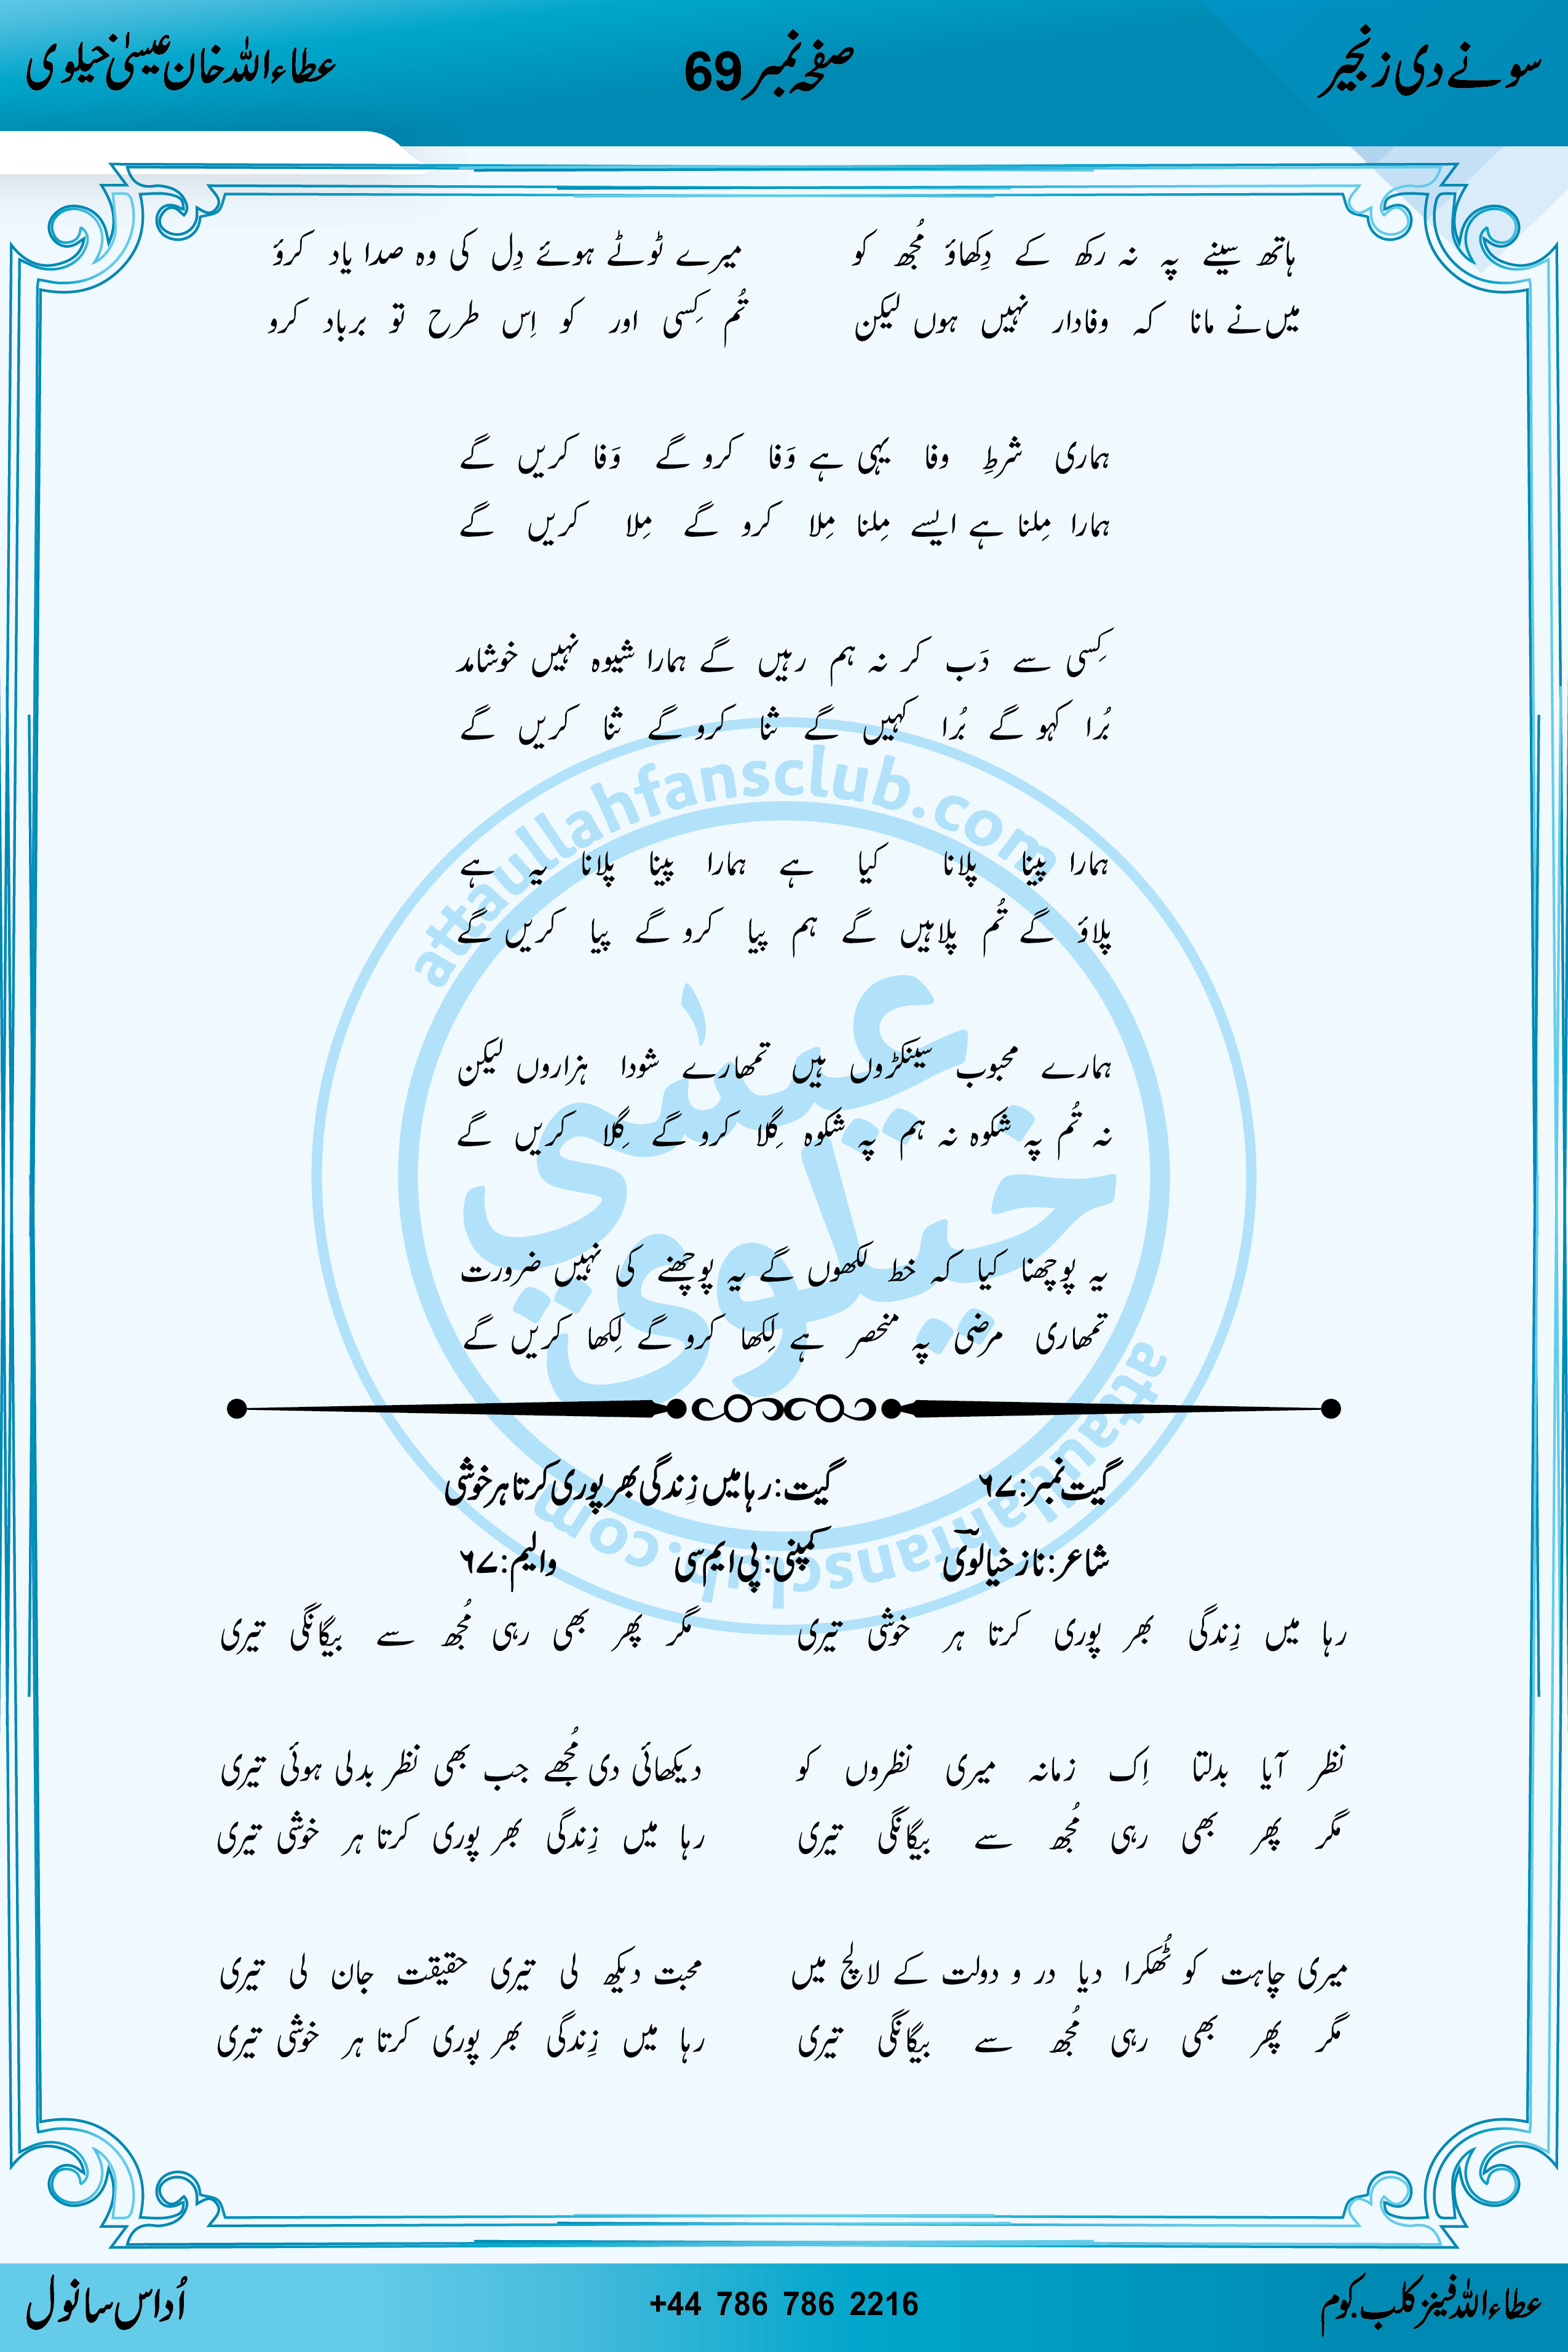 سونے دی زنجیر صفحہ نمبر 69 عطاءاللہ خان عیسیٰ خیلوی
ہاتھ سینے پہ نہ رکھ کے دِکھاؤ مُجھ کو میرے ٹوٹے ہوئے دِل کی وہ صدا یاد کرؤ
میں نے مانا کہ وفادار نہیں ہوں لیکن تُم کِسی اور کو اِس طرح تو برباد کرو
ہماری شرطِ وفا یہی ہے وَفا کرو گے وَفا کریں گے
ہمارا مِلنا ہے ایسے مِلنا مِلا کرو گے مِلا کریں گے
کِسی سے دَب کر نہ ہم رہیں گے ہمارا شیوہ نہیں خوشامد
بُرا کہو گے بُرا کہیں گے ثنا کرو گے ثنا کریں گے
ہمارا پینا پلانا کیا ہے ہمارا پینا پلانا یہ ہے
پلاؤ گے تُم پلاہیں گے ہم پیا کرو گے پیا کریں گے
ہمارے محبوب سینکڑوں ہیں تمھارے شودا ہزاروں لیکن
نہ تُم پہ شکوہ نہ ہم پہ شکوہ گِلا کرو گے گِلا کریں گے
یہ پوچھنا کیا کہ خط لکھوں گے یہ پوچھنے کی نہیں ضرورت
تمھاری مرضی پہ منحصر ہے لِکھا کرو گے لِکھا کریں گے
گیت نمبر: ٦٧ گیت: رہا میں زِندگی بھر پوری کرتا ہر خوشی
شاعر: ناز خیالوی کمپنی: پی ایم سی والیم: ٦٧
رہا میں زِندگی بھر پوری کرتا ہر خوشی تیری مگر پھر بھی رہی مُجھ سے بیگانگی تیری
نظر آیا بدلتا اِک زمانہ میری نظروں کو دیکھائی دی مُجھے جب بھی نظر بدلی ہوئی تیری
مگر پھر بھی رہی مُجھ سے بیگانگی تیری رہا میں زِندگی بھر پوری کرتا ہر خوشی تیری
میری چاہت کو ٹُھکرا دیا در و دولت کے لالچ میں محبت دیکھ لی تیری حقیقت جان لی تیری
مگر پھر بھی رہی مُجھ سے بیگانگی تیری رہا میں زِندگی بھر پوری کرتا ہر خوشی تیری
attaullahfansclub.com
عیسیٰ
خیلوی
attaullahfansclub.com
عطاءاللہ فینز کلب.کوم +44 786 786 2216 اُداس سانول